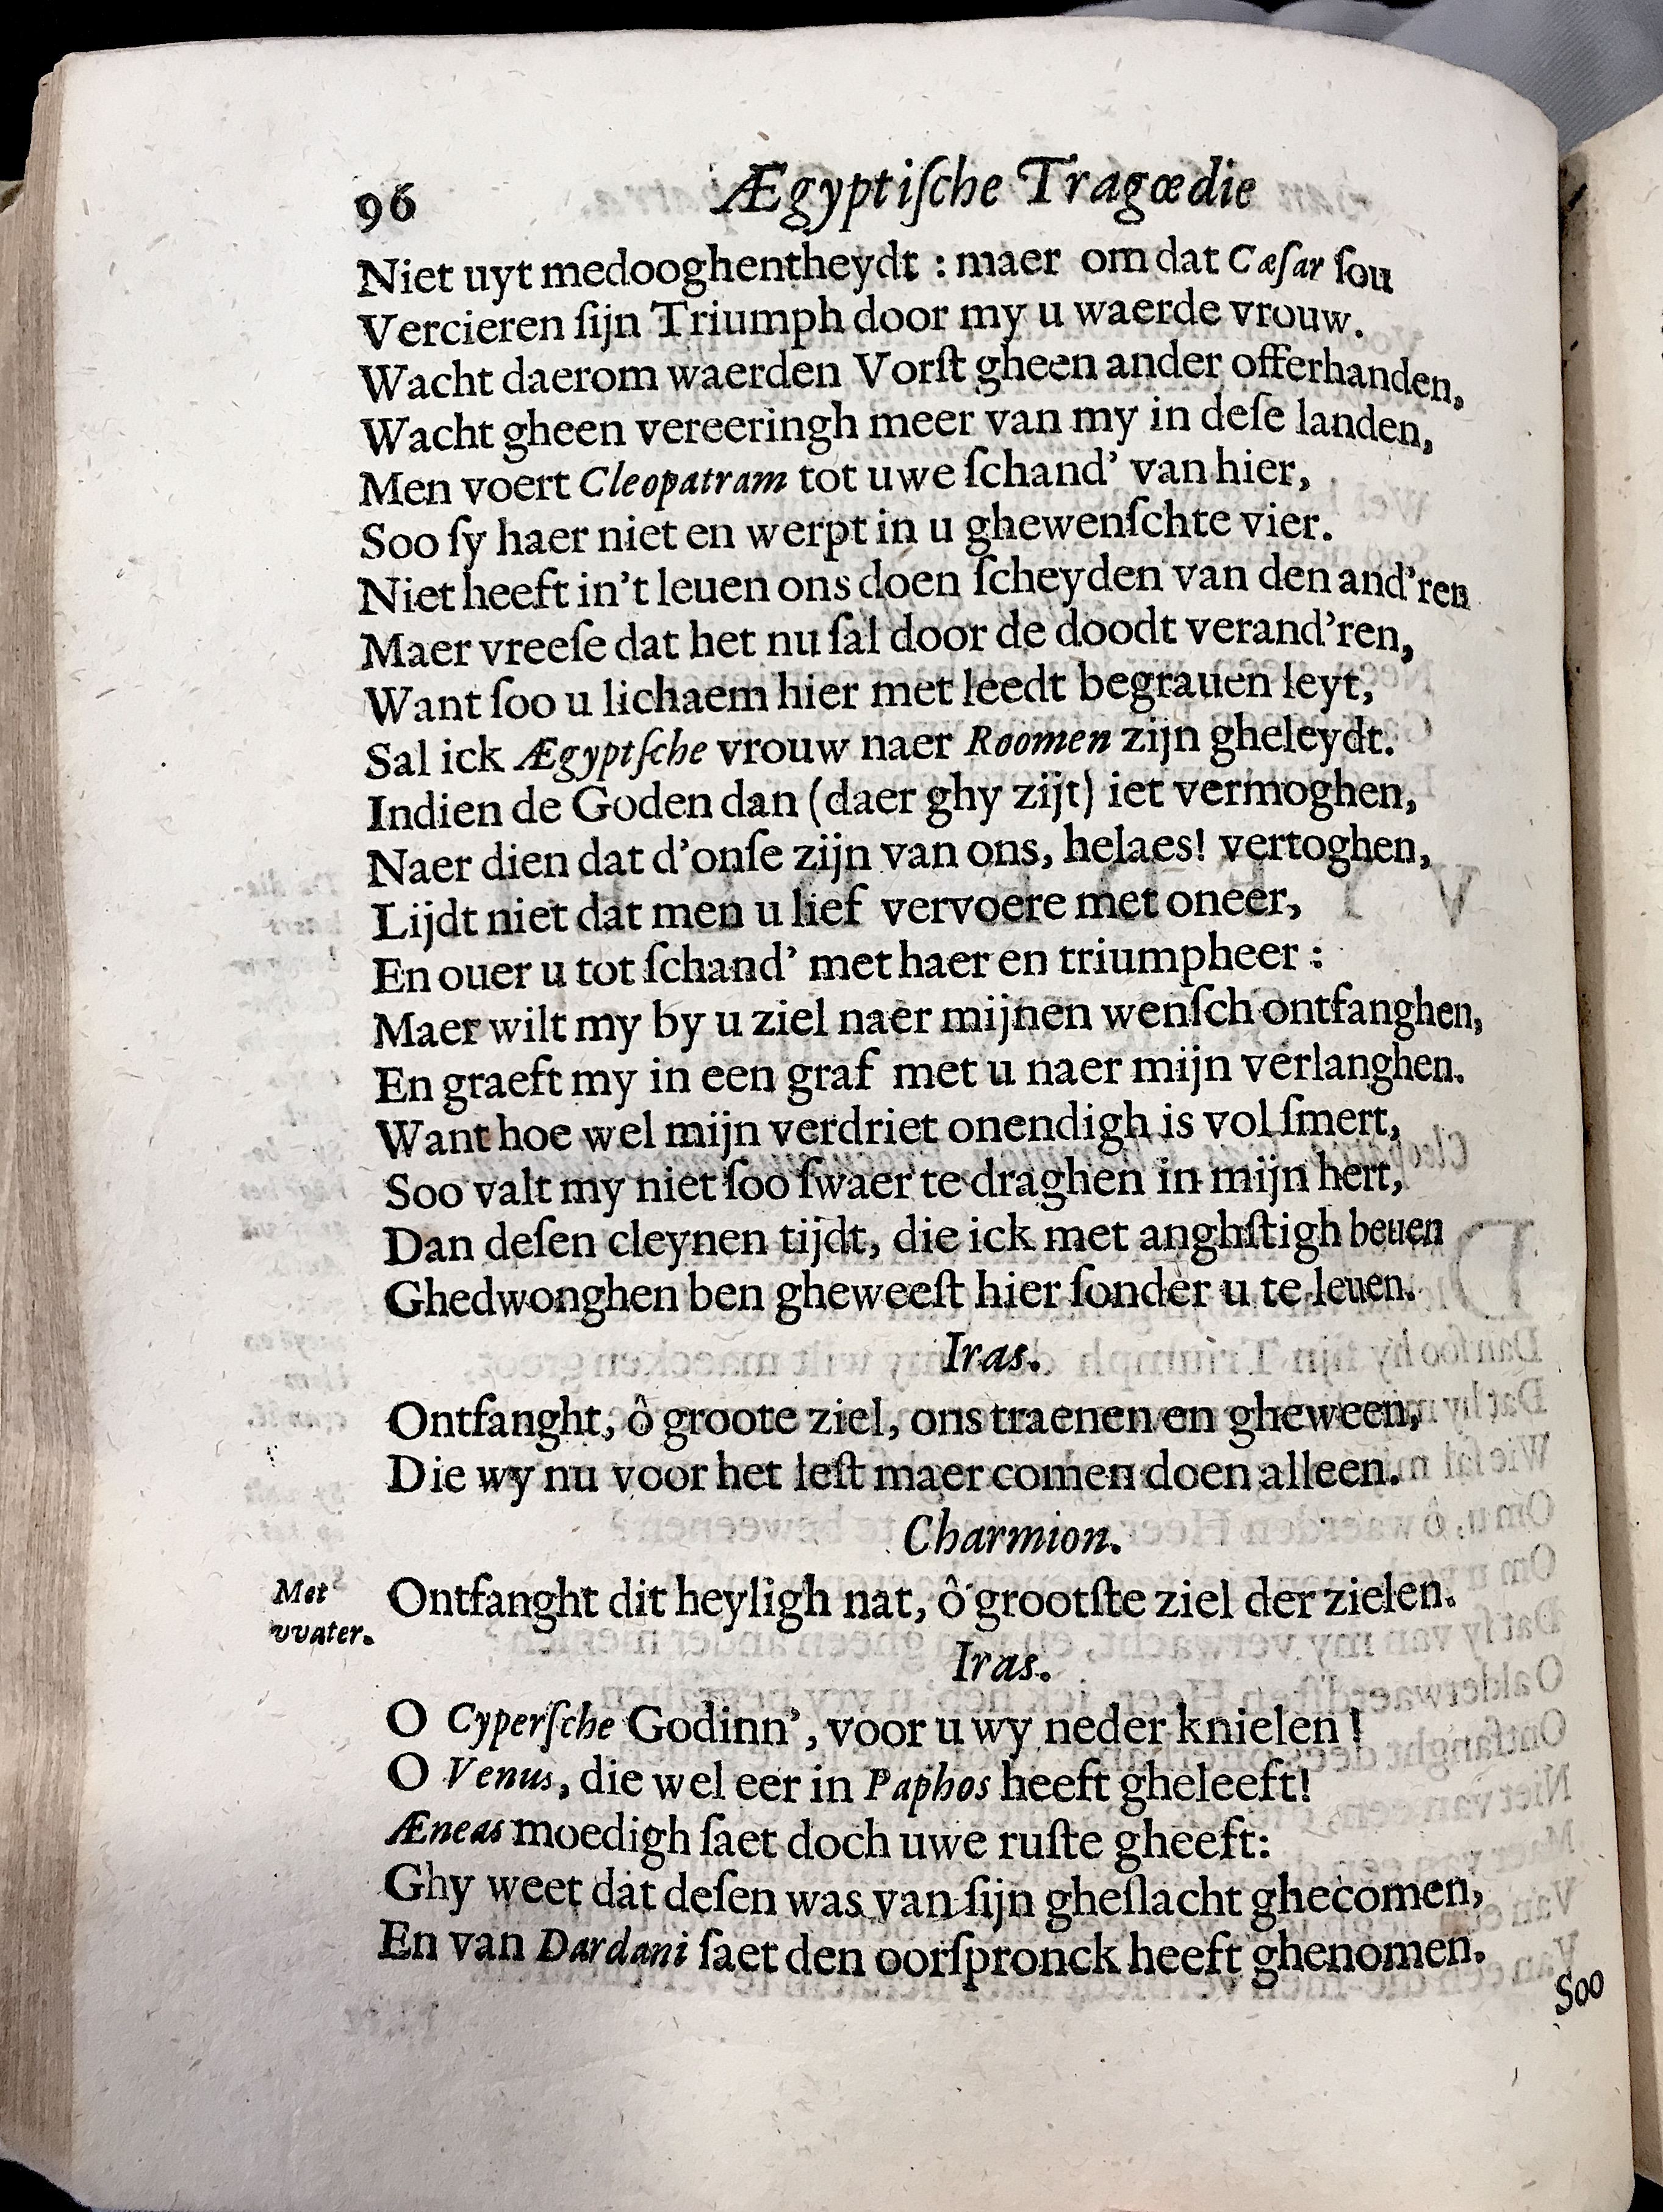 96 Ægyptiſche Tragœdie
Niet uyt medooghentheydt : maer om dat Cæſar ſou
Vercieren ſijn Triumph door my u waerde vrouw.
Wacht daerom waerden Vorſt gheen ander offerhanden,
Wacht gheen vereeringh meer van my in deſe landen,
Men voert Cleopatram tot uwe ſchand' van hier,
Soo ſy haer niet en werpt in u ghewenſchte vier.
Niet heeft in't leuen ons doen ſcheyden van den and'ren
Maer vreeſe dat het nu ſal door de doodt verand'ren,
Want ſoo u lichaem hier met leedt begrauen leyt,
Sal ick Ægyptſche vrouw naer Roomen zijn gheleydt.
Indien de Goden dan (daer ghy zijt) iet vermoghen,
Naer dien dat d'onſe zijn van ons, helaes! vertoghen,
Lijdt niet dat men u lief vervoere met oneer,
En ouer u tot ſchand' met haer en triumpheer :
Maer wilt my by u ziel naer mijnen wenſch ontfanghen,
En graeft my in een graf met u naer mijn verlanghen.
Want hoe wel mijn verdriet onendigh is vol ſmert,
Soo valt my niet ſoo ſwaer te draghen in mijn hert,
Dan deſen cleynen tijdt, die ick met anghſtigh beuen
Ghedwonghen ben gheweeſt hier ſonder u te leuen.
Iras.
Ontfanght, ô groote ziel, ons traenen en gheween,
Die wy nu voor het leſt maer comen doen alleen.
Charmion.
Met
vvater.
Ontfanght dit heyligh nat, ô grootſte ziel der zielen.
Iras.
O Cyperſche Godinn', voor u wy neder knielen !
O Venus, die wel eer in Paphos heeft gheleeft!
Æneas moedigh ſaet doch uwe ruſte gheeft:
Ghy weet dat deſen was van ſijn gheſlacht ghecomen,
En van Dardani ſaet den oorſpronck heeft ghenomen.
Soo